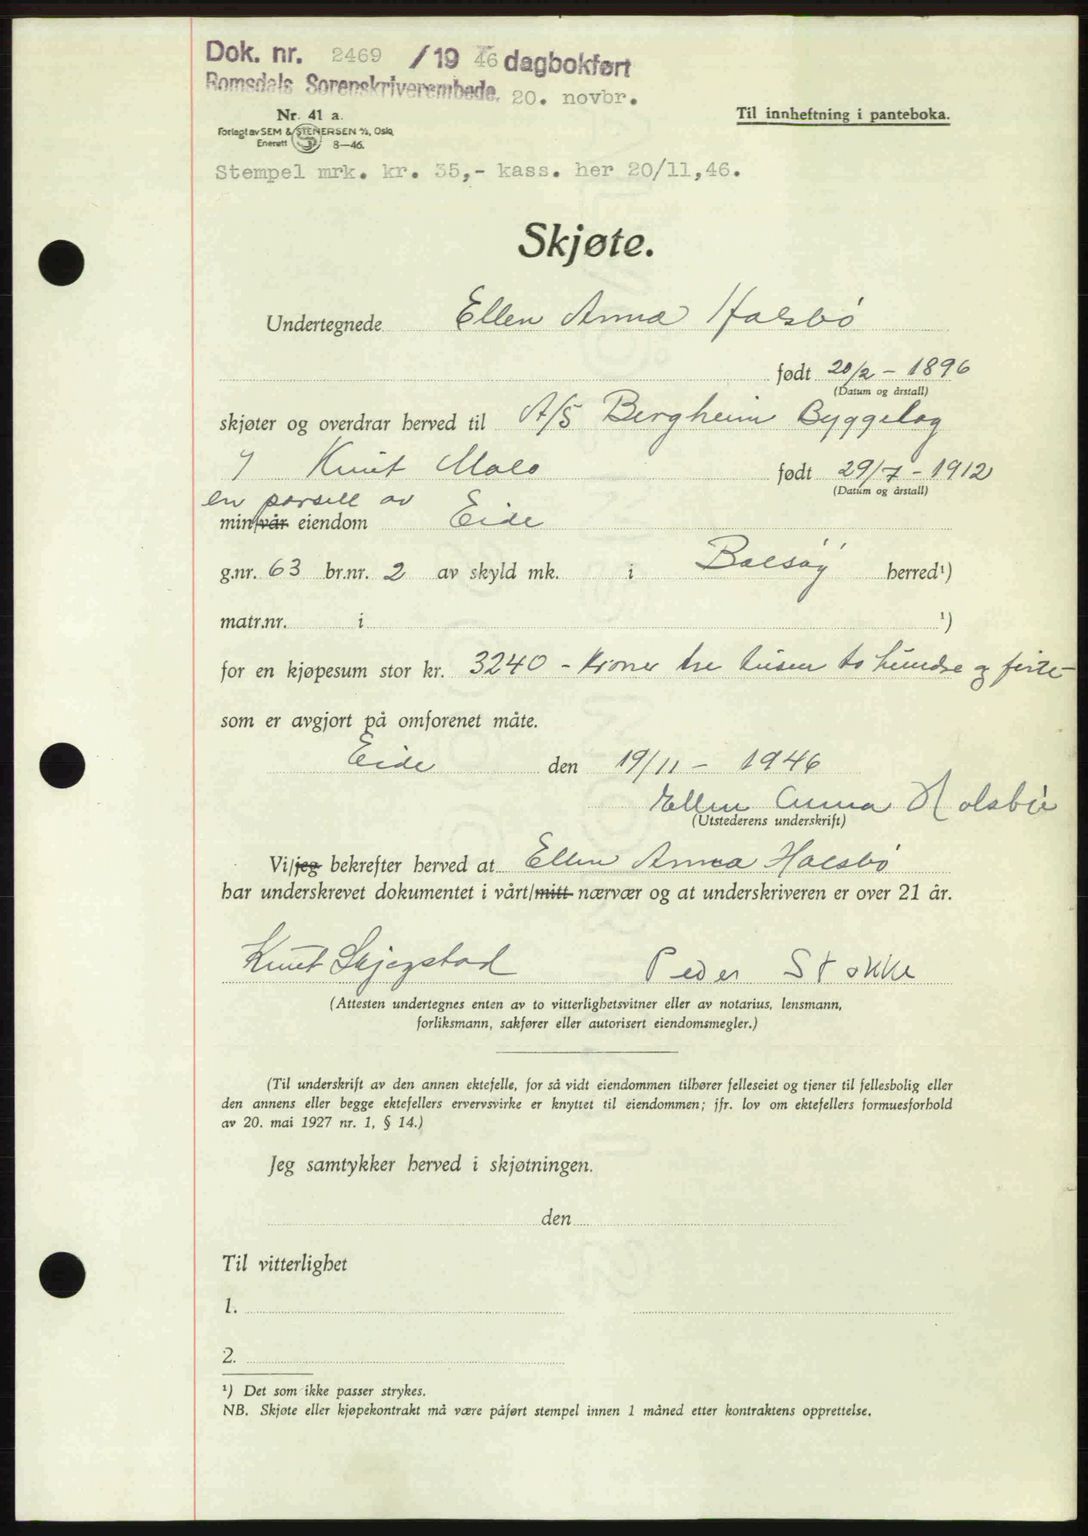 Dok. nr. 2469 /1946 dagbokført
Romsdals Sorenskriverembede. 20. novbr.
Nr. 41 a.
Forlagt av SEM & STENERSEN A/S, Oslo
Enerett 8—46.
Til innheftning i panteboka.
Stempel mrk. kr. 35,- kass. her 20/11,46.
Skjøte.
Undertegnede Ellen Anna Halsbö
født 20/2 - 1896
(Datum og årstall)
skjøter og overdrar herved til A/S Bergheim Byggelag
Knut Malo født 29/7 - 1912
(Datum og årstall)
en parsell av
min/vår eiendom Eide
g.nr. 63 br.nr. 2 av skyld mk. i Bolsøy herred¹)
matr.nr. i ¹)
for en kjøpesum stor kr. 3240 - Kroner tre tusen to hundre og førti-
som er avgjort på omforenet måte.
Eide den 19/11 - 1946
Ellen Anna Halsbö
(Utstederens underskrift)
Vi/jeg bekrefter herved at Ellen Anna Halsbö
har underskrevet dokumentet i vårt/mitt nærvær og at underskriveren er over 21 år.
Knut Skjegstad Peder Stokke
(Attesten undertegnes enten av to vitterlighetsvitner eller av notarius, lensmann,
forliksmann, sakfører eller autorisert eiendomsmegler.)
(Til underskrift av den annen ektefelle, for så vidt eiendommen tilhører felleseiet og tjener til fellesbolig eller
den annens eller begge ektefellers ervervsvirke er knyttet til eiendommen; jfr. lov om ektefellers formuesforhold
av 20. mai 1927 nr. 1, § 14.)
Jeg samtykker herved i skjøtningen.
den
Til vitterlighet
1.
2.
¹) Det som ikke passer strykes.
NB. Skjøte eller kjøpekontrakt må være påført stempel innen 1 måned etter kontraktens opprettelse.